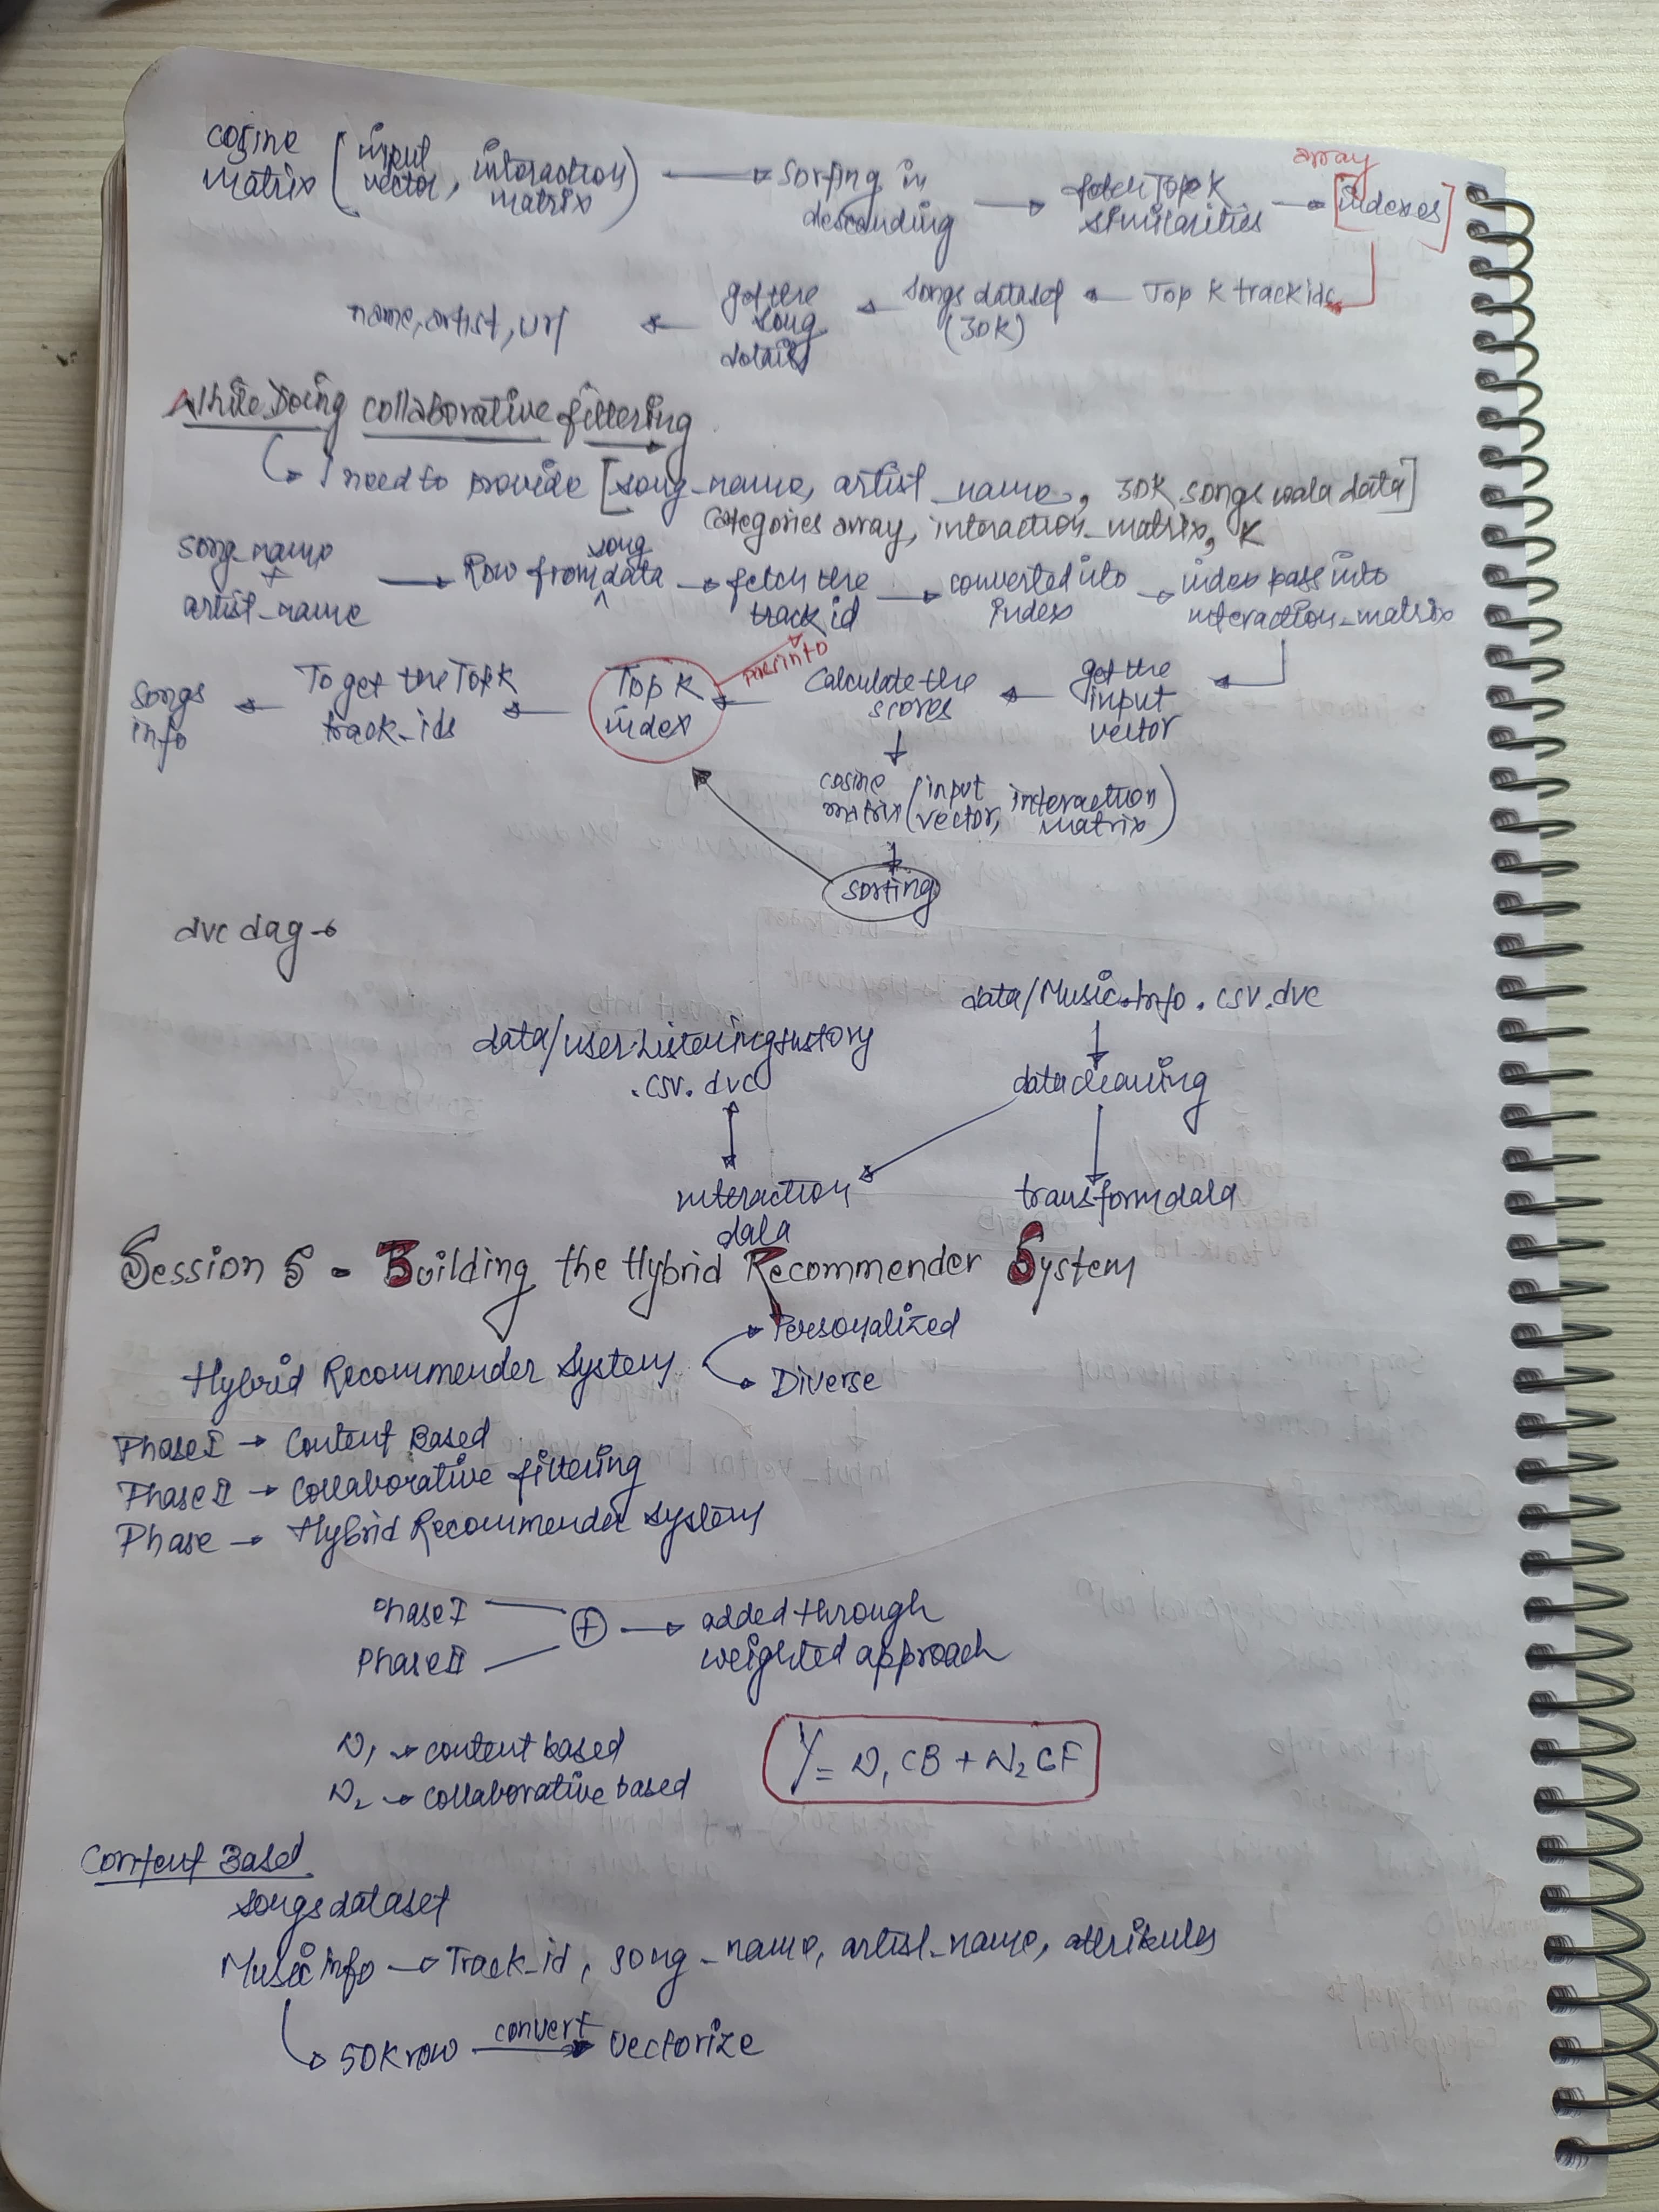 cosine matrix (input vector, interaction matrix) → sorting in descending → fetch Top K similarities → [indexes] array
name, artist, url ← get the song details ← songs dataset (30K) ← Top K track ids
While Doing collaborative filtering
↳ I need to provide [song_name, artist_name, 30K songs wala data]
categories array, interaction_matrix, K
song_name + artist_name → Row from song data → fetch the track id → converted into index → index pass into interaction_matrix
songs info ← To get the Top K track_ids ← Top K index ← Calculate the scores ← get the input vector
pass into
cosine matrix (input vector, interaction matrix)
sorting
dvc dag →
data/Music Info.csv.dvc
data/User Listening History
.csv.dvc
data cleaning
interaction data
transform data
Session 5 - Building the Hybrid Recommender System
Personalized
Hybrid Recommender System
Diverse
Phase I → Content Based
Phase II → Collaborative filtering
Phase → Hybrid Recommender System
Phase I
⊕ → added through
Phase II
weighted approach
W₁ → content based
W₂ → collaborative based
Y = W₁ CB + W₂ CF
Content Based
songs dataset
Music info → Track_id, song_name, artist_name, attributes
↳ 50K row convert → vectorize